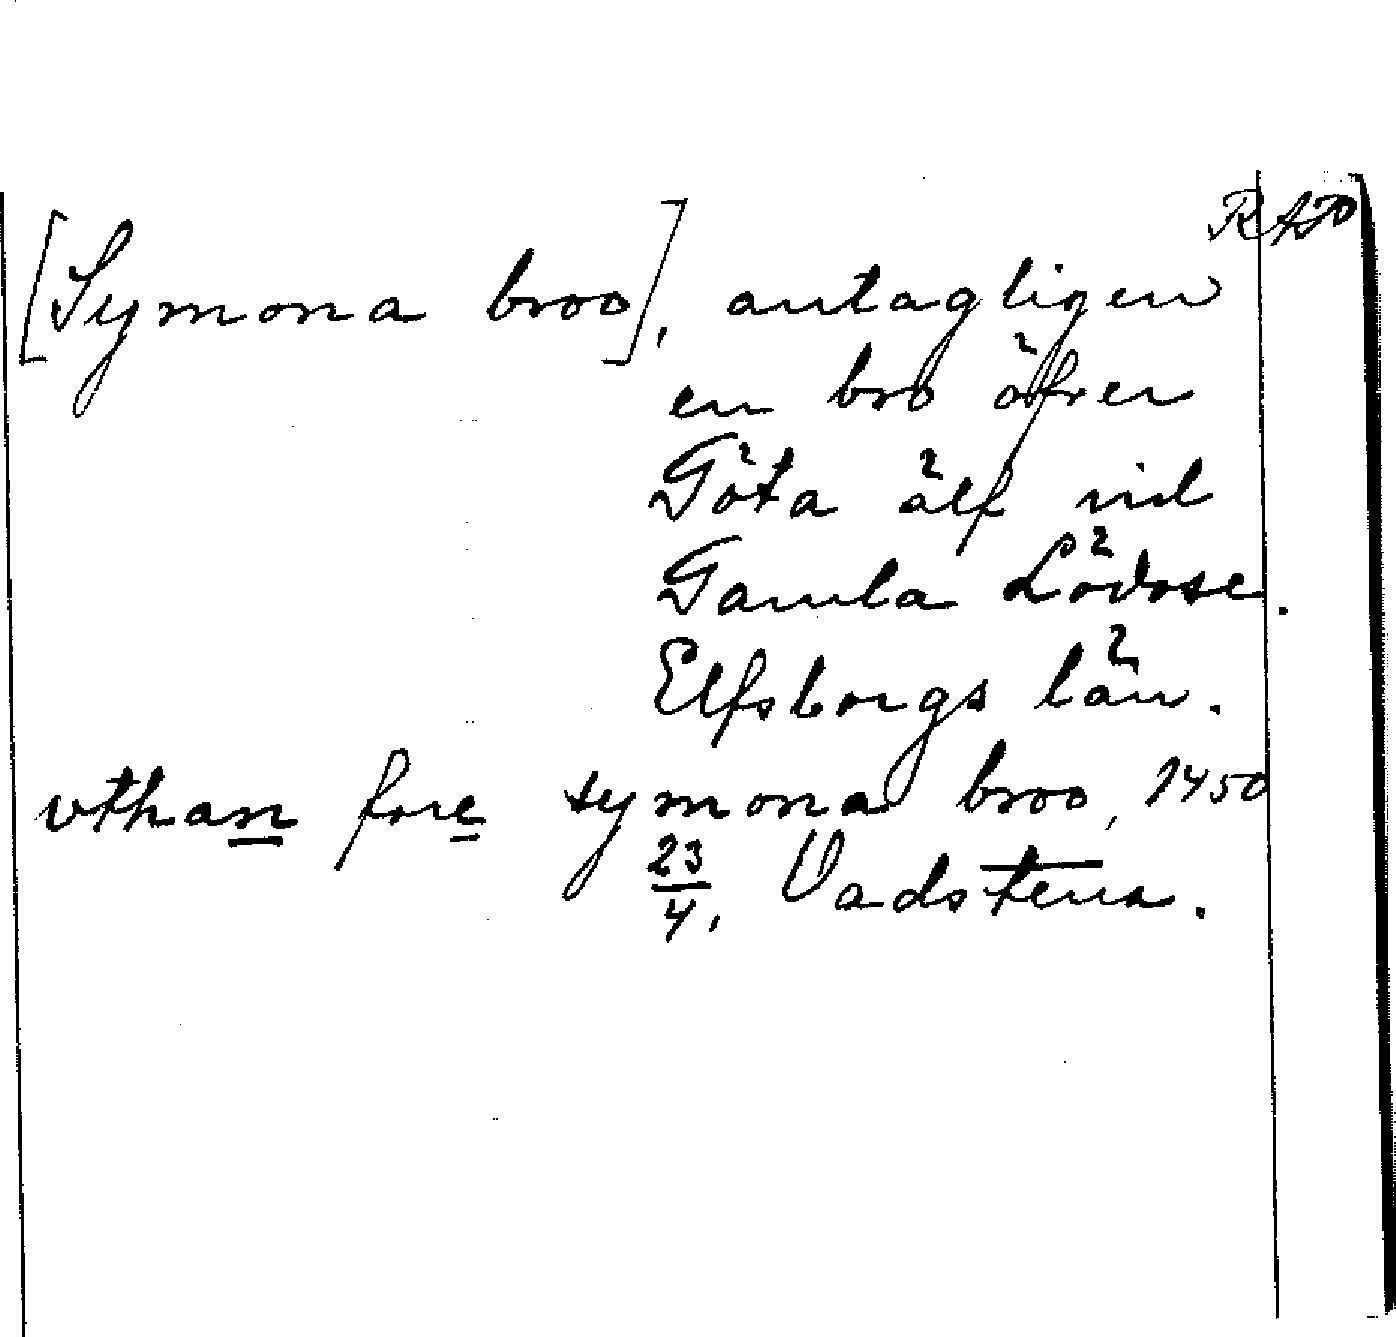 RAP
[Symona broo], antagligen
en bro öfver
Göta älf vid
Gamla Lödose.
Elfsborgs län.
vthan fore symona broo, 1450
23/4, Vadstena.